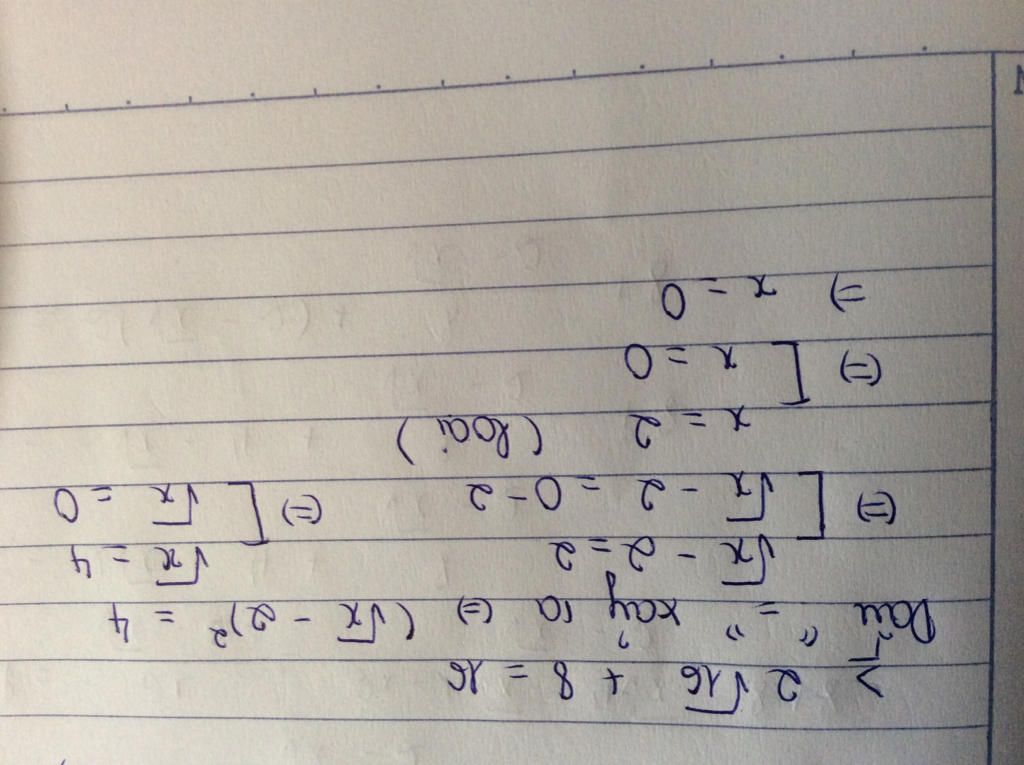 ≥ 2√16 + 8 = 16
Dấu "=" xảy ra (=) (√x - 2)² = 4
√x - 2 = 2 √x = 4
(=) [ √x - 2 = 0-2 (=) [ √x = 0
x = 2 (loại)
(=) [ x = 0
=) x = 0